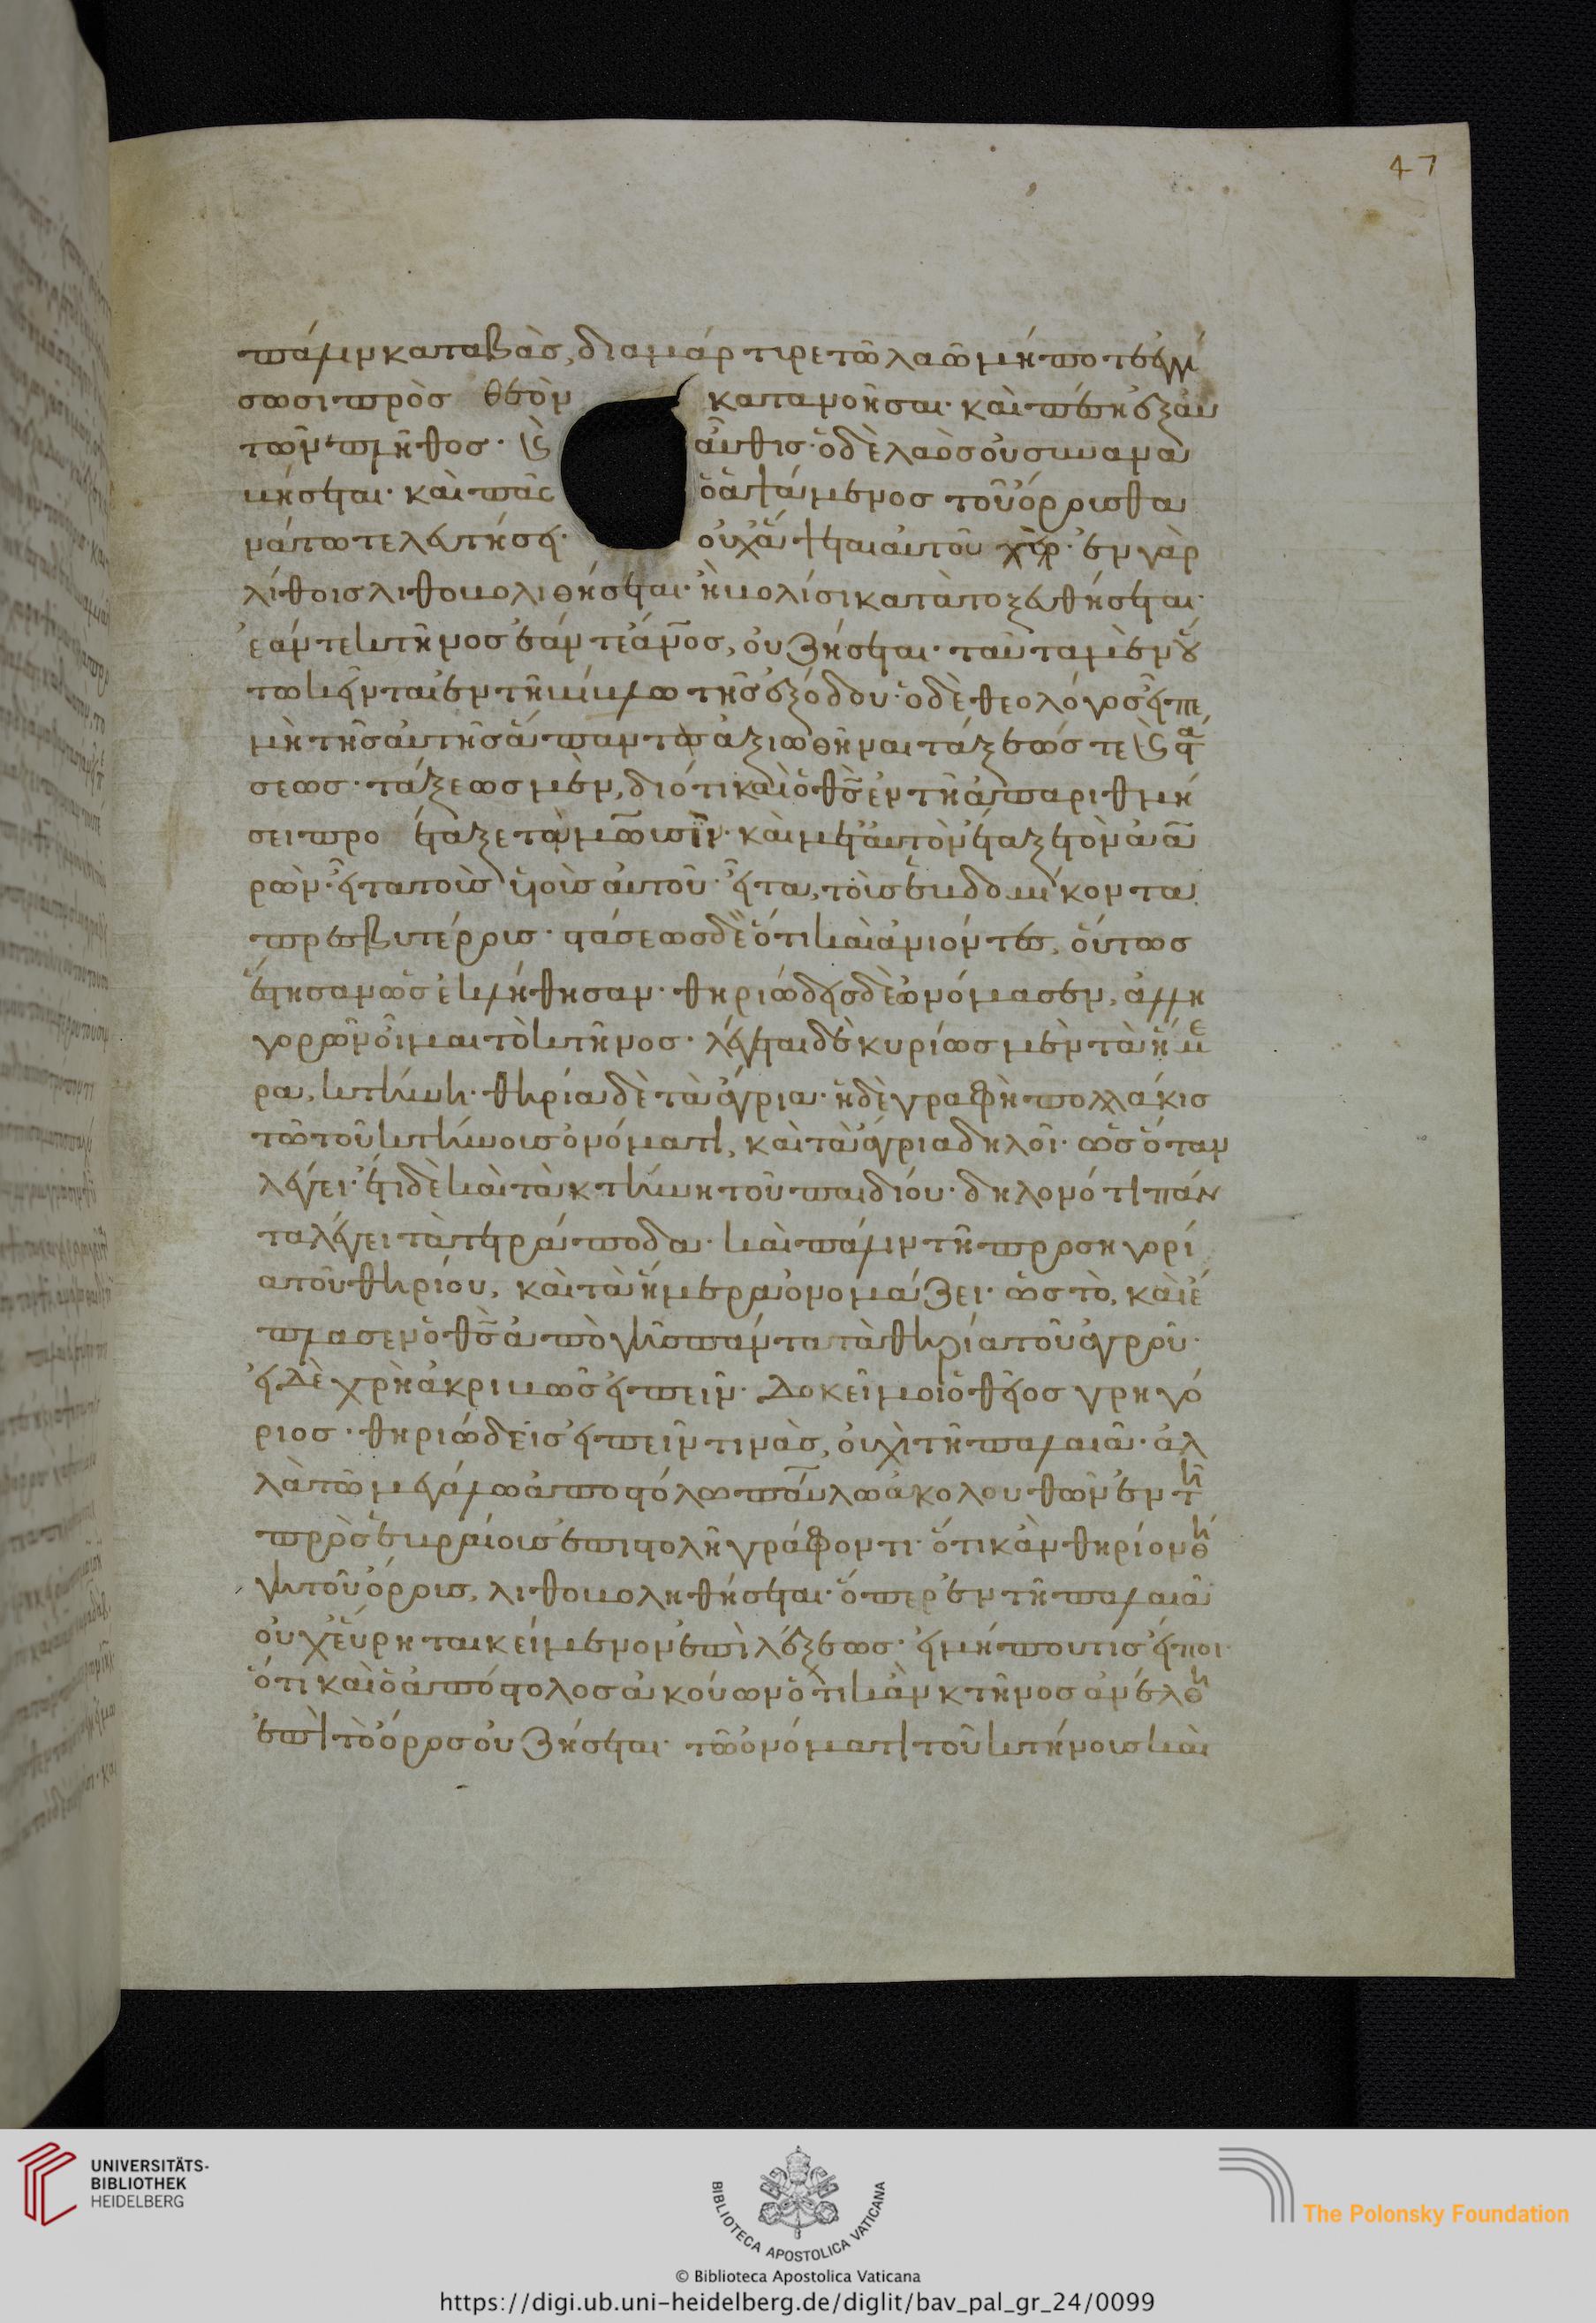 47
πάλιν καταβὰς, διαμάρτυρε τῶ λαῶ μήποτε ἐγγί
σωσι πρὸς θεὸν κατανοῆσαι· καὶ πέσῃ ἐξ αὐ
τῶν πλῆθος· καὶ αὖθις· ὁ δὲ λαὸς οὐ συναναβ
βήσεται· καὶ πᾶς ὁ ἁψάμενος τοῦ ὄρους θα
νάτω τελευτήσει· οὐχ ἅψεται αὐτοῦ χείρ· ἐν γὰρ
λίθοις λιθοβοληθήσεται· ἢ βολίσι κατατοξευθήσεται·
ἐάν τε κτῆνος ἐάν τε ἄνος, οὐ ζήσεται· ταῦτα μὲν οὕ
τω κεῖνται ἐν τῆ βίβλω τῆς ἐξόδου· ὁ δὲ θεολόγος εἶπε
μὴ τῆς αὐτῆς ἅπαντας ἀξιωθῆναι τάξεώς τε καὶ στά
σεως· τάξεως μὲν, διότι καὶ ὁ θς ἐν τῆ ἀπαριθμή
σει προέταξε τὸν μωσῆν· καὶ μετ' αὐτὸν ἔταξε τὸν ἀα
ρών· εἶτα τοὺς υἱοὺς αὐτοῦ· εἶτα, τοὺς ἑβδομήκοντα
πρεσβυτέρους· στάσεως δὲ ὅτι καὶ ἀνιόντες, οὕτως
ἔστησαν ὡς ἐκλήθησαν· θηριώδεις δὲ ὠνόμασεν, ἀλλη
γορῶν οἶμαι τὸ κτῆνος· λέγεται δὲ κυρίως μὲν τὰ ἥμε
ρα, κτήνη· θηρία δὲ τὰ ἄγρια· ἡ δὲ γραφὴ πολλάκις
τῶ τοῦ κτήνους ὀνόματι, καὶ τὰ ἄγρια δηλοῖ· ὡς ὅταν
λέγει· ἔτι δὲ καὶ τὰ κτήνη τοῦ παιδίου· δηλονότι πάν
τα λέγει τὰ τετράποδα· καὶ πάλιν τῆ προσηγορί
α τοῦ θηρίου, καὶ τὰ ἥμερα ὀνομάζει· ὡς τὸ, καὶ ἔ
πλασεν ὁ θς ἀπὸ γῆς πάντα τὰ θηρία τοῦ ἀγροῦ·
εἰ δὲ χρὴ ἀκριβῶς εἰπεῖν· δοκεῖ μοι ὁ θεῖος γρηγό
ριος· θηριώδεις εἰπεῖν τινὰς, οὐχὶ τῆ παλαιᾶ· ἀλ
λὰ τῶ μεγάλω ἀποστόλω παύλω ἀκολουθῶν ἐν τῆ
πρὸς ἑβραίους ἐπιστολῆ γράφοντι· ὅτι κἂν θηρίον θί
γη τοῦ ὄρους, λιθοβοληθήσεται· ὅπερ ἐν τῆ παλαιᾶ
οὐχ εὕρηται κείμενον ἐπὶ λέξεως· εἰ μή που τις εἴποι·
ὅτι καὶ ὁ ἀπόστολος ἀκούων ὅτι κἂν κτῆνος ἀνέλθη
ἐπὶ τὸ ὄρος οὐ ζήσεται· τῶ ὀνόματι τοῦ κτήνους καὶ
UNIVERSITÄTS-
BIBLIOTHEK
HEIDELBERG
BIBLIOTECA APOSTOLICA VATICANA
The Polonsky Foundation
© Biblioteca Apostolica Vaticana
https://digi.ub.uni-heidelberg.de/diglit/bav_pal_gr_24/0099